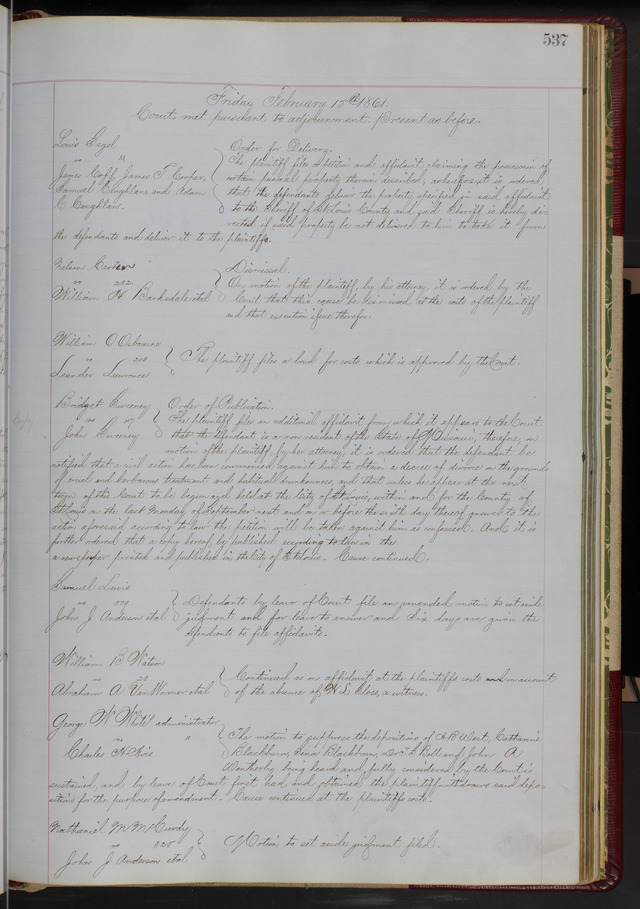 537
Friday February 15th 1861.
Court met pursuant to adjournment. Present as before.
Louis Sagel
vs
James Goff, James T. Cooper,
Samuel Caughlan, and Adam
C Caughlan.
Order for Delivery.
The plaintiff files a petition and affidavit claiming the possession of
certain personal property therein described, whereupon it is ordered
that the defendants deliver the property specified in said affidavit
to the Sheriff of St Louis County and said Sheriff is hereby di-
rected if said property be not delivered to him to take it from
the defendants and deliver it to the plaintiffs.
Nelson Carter
vs 292
William H Barksdale et al
Dismissal.
On motion of the plaintiff, by his attorney, it is ordered by the
Court that this cause be dismissed at the costs of the plaintiff
and that execution issue therefor.
William O Osbourne
vs
Leander Lawrence
The plaintiff files a bond for costs which is approved by the Court.
Bridget Sweeney
vs 117
John Sweeney
Order of Publication.
The plaintiff files an additional affidavit from which it appears to the Court
that the defendant is a non resident of the state of Missouri, therefore, on
motion of the plaintiff by her attorney, it is ordered that the defendant be
notified that a civil action has been commenced against him to obtain a decree of divorce on the grounds
of cruel and barbarous treatment and habitual drunkenness, and that unless he appear at the next
term of this Court to be begun and held at the City of St Louis, within and for the County of
St Louis on the last Monday of September next and on or before the sixth day thereof answer to the
action aforesaid according to law the petition will be taken against him as confessed. And it is
further ordered that a copy hereof be published according to law in the
a newspaper printed and published in the City of St Louis. Cause continued.
Samuel Lewis
vs
John J Anderson et al
Defendants by leave of Court file an amended motion to set aside
judgment and for leave to answer and Six days are given the
defendants to file affidavits.
William B Watson
vs
Abraham A Van Wormer et al
Continued as on affidavit at the plaintiffs costs on account
of the absence of H L Closs, a witness.
George W White administrator
vs "
Charles H
The motion to suppress the depositions of A B West, Catharine
Blackburn, Blackburn, Dr J H Bull and John A
Weatherby being heard and fully considered by the Court is
sustained, and by leave of Court first had and obtained the plaintiff withdraws said depo-
sitions for the purpose of amendment. Cause continued at the plaintiffs costs.
Nathaniel M McCurdy
vs 925
John J Anderson et al
Motion to set aside judgment filed.